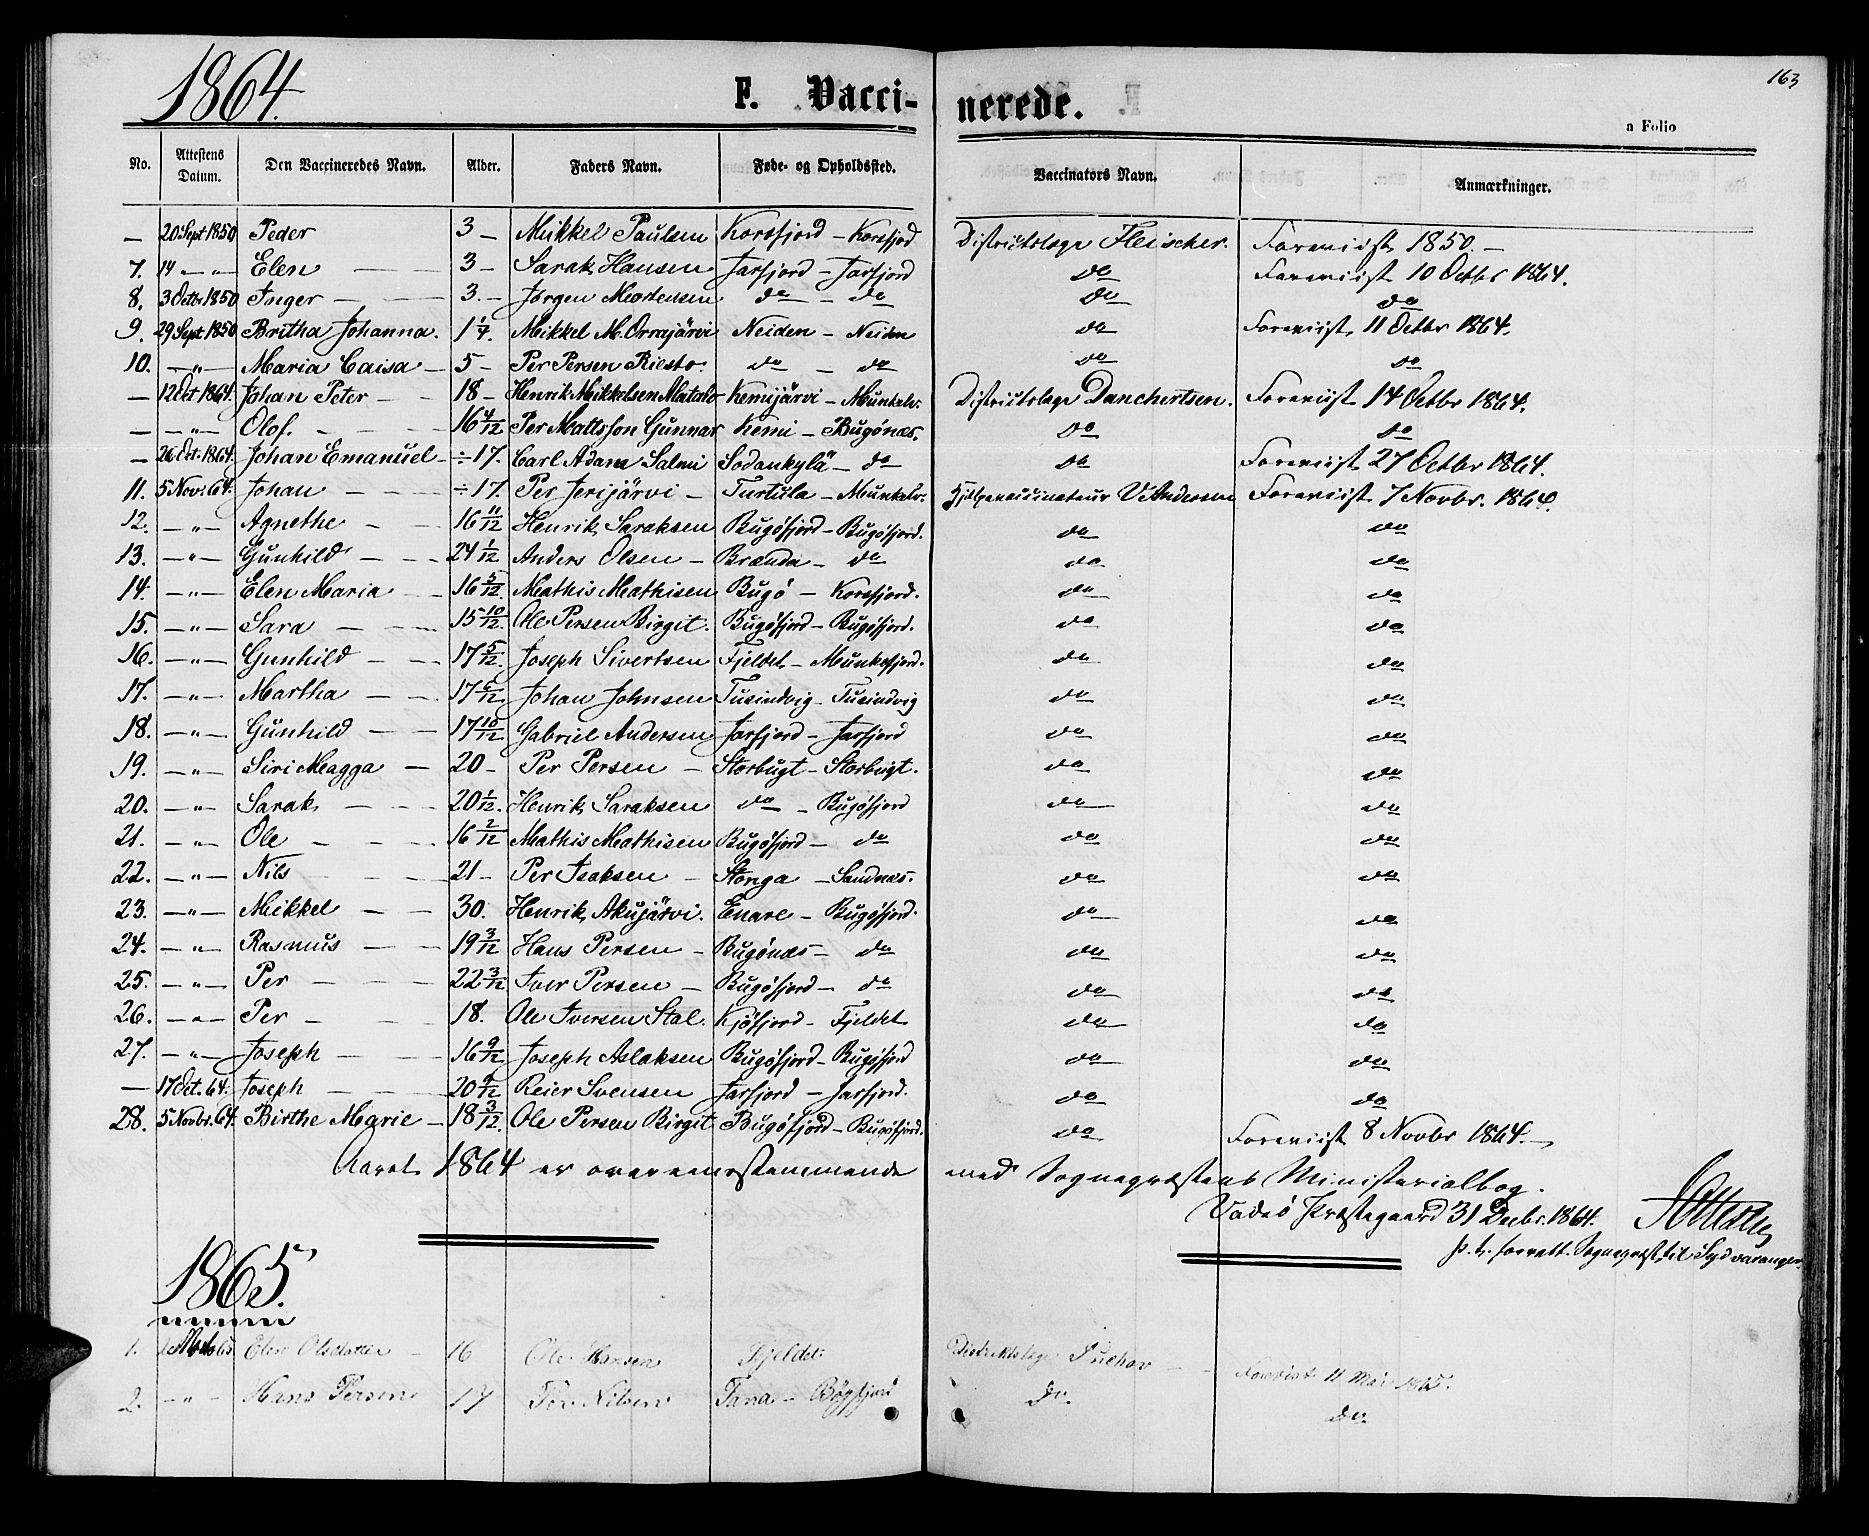 163
1864.
F. Vacci- nerede.
a Folio
No. Attestens Datum. Den Vaccineredes Navn. Alder. Faders Navn. Føde- og Opholdssted. Vaccinators Navn. Anmærkninger.
— 20 Sept 1850 Peder 3 — Mikkel Paulsen Korsfjord — Korsfjord Districtslæge Fleischer. Foreviist 1850. —
7. 14 — „ — Elen — — 3 — Sarak Hansen Jarfjord — Jarfjord do Foreviist 10 Octbr 1864.
8. 3 Octbr 1850 Inger — — 3. — Jørgen Mortensen do — do do do
9. 29 Sept 1850 Britha Johanna. 1 1/4. Mikkel M. Orrajärvi Neiden — Neiden do Foreviist 11 Octbr 1864.
10. — „ — Maria Caisa — 5 — Per Persen Riesto. do — do do do
— 12 Oct 1864. Johan Peter — — 18 — Henrik Mikkelsen Matalo Kemijärvi — Munkelv. Districtslæge Danchertsen. Foreviist 14 Octbr 1864.
— — „ — Olof. — — 16 4/12 Per Mattsson Gunnar Kemi — Bugönæs. do do
— 26 Oct. 1864. Johan Emanuel — ÷ 17. Carl Adam Salmi Sodankylä — do do Foreviist 27 Octbr 1864.
11. 5 Nov. 64. Johan — — ÷ 17. Per Jerijärvi — Turtula — Munkelv. Hjelpevaccinateur U Andersen Foreviist 7 Novbr. 1864.
12. — „ — Agnethe — — 16 11/12 Henrik Saraksen Bugöfjord — Bugöfjord. do do
13. — „ — Gunhild — — 24 1/12 Anders Olsen — Brænda — do do do
14. — „ — Elen Maria — — 16 5/12. Mathis Mathisen Bugö — Korsfjord. do do
15. — „ — Sara — — 15 10/12. Ole Persen Birgit. Bugöfjord — Bugöfjord. do do
16. — „ — Gunhild — — 17 5/12. Joseph Sivertsen Fjeldet — Munkefjord. do do
17. — „ — Martha — — 17 6/12. Johan Johnsen Tusindvig — Tusindvig do do
18. — „ — Gunhild — — 17 10/12 Gabriel Andersen Jarfjord — Jarfjord do do
19. — „ — Siri Magga — 20 — Per Persen — Storbugt — Storbugt. do do
20. — „ — Sarak — — 20 1/12. Henrik Saraksen do — Bugöfjord do do
21. — „ — Ole — — 16 2/12 Mathis Mathisen Bugöfjord — do do do
22. — „ — Nils — — 21 — Per Isaksen — Stonga — Sandnæs. do do
23. — „ — Mikkel — — 30. Henrik Akujärvi. Enare — Bugöfjord. do do
24. — „ — Rasmus — — 19 3/12 Hans Persen — Bugönæs — do do do
25. — „ — Per — — 22 3/12 Iver Persen — Bugöfjord — do do do
26. — „ — Per — — 18. Ole Iversen Stal. Kjöfjord — Fjeldet do do
27. — „ — Joseph — — 16 9/12 Joseph Aslaksen Bugöfjord — Bugöfjord do do
— 17 Oct. 64. Joseph — — 20 9/12 Reier Svensen Jarfjord — Jarfjord. do do
28. 5 Novbr. 64. Birthe Marie — 18 3/12. Ole Persen Birgit Bugöfjord — Bugöfjord. do Foreviist 8 Novbr 1864. —
Aaret 1864 er overensstemmende med Sognepræstens Ministerialbog.
Vadsö Præstegaard 31 Decbr. 1864.
p. t. forrett. Sognepræst til Sydvaranger.
1865.
1. Elen Olsdatter — 16 Ole Hansen Fjeldet Distriktslæge Foreviist 11 Mai 1865.
2. — „ — Hans Persen 17 Per Nilsen Tana — Bögfjord Do. Do